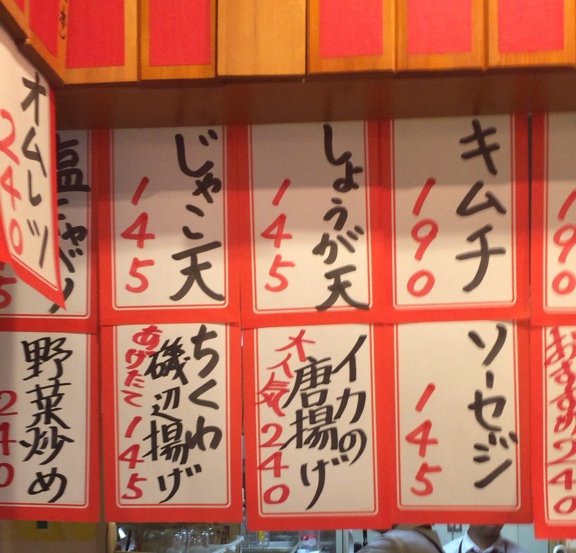 キムチ
190
しょうが天
145
じゃこ天
145
オムレツ
240
ソーセージ
145
イカの
唐揚げ
大人気240
ちくわ
磯辺揚げ
あげたて145
野菜炒め
240
おすすめ240